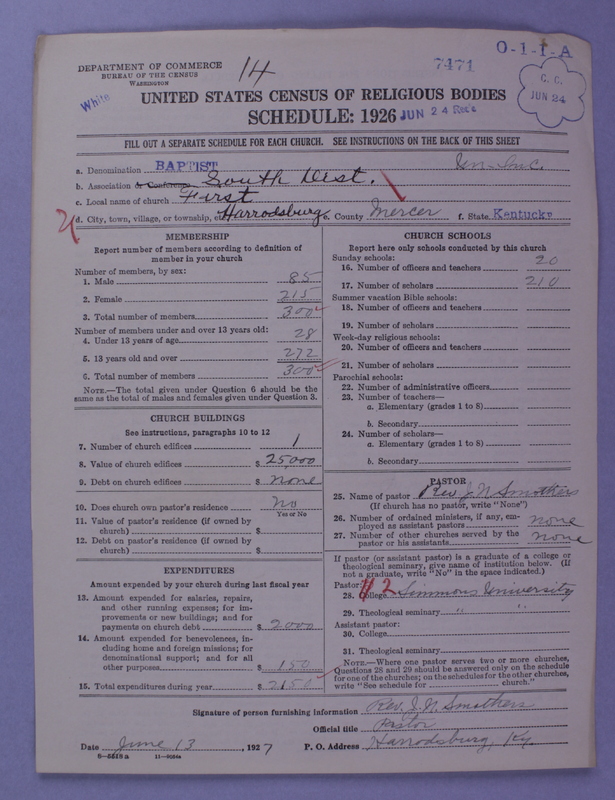 O-1-1-A
DEPARTMENT OF COMMERCE
BUREAU OF THE CENSUS
WASHINGTON
14
7471
White
C. C.
JUN 24
UNITED STATES CENSUS OF RELIGIOUS BODIES
SCHEDULE: 1926
JUN 24 Rec'd
FILL OUT A SEPARATE SCHEDULE FOR EACH CHURCH. SEE INSTRUCTIONS ON THE BACK OF THIS SHEET
a. Denomination BAPTIST Un-Inc.
b. Association or Conference South Dist.
c. Local name of church First
d. City, town, village, or township, Harrodsburg e. County Mercer f. State Kentucky
MEMBERSHIP
Report number of members according to definition of
member in your church
Number of members, by sex:
1. Male 85
2. Female 215
3. Total number of members 300
Number of members under and over 13 years old:
4. Under 13 years of age 28
5. 13 years old and over 272
6. Total number of members 300
NOTE.—The total given under Question 6 should be the
same as the total of males and females given under Question 3.
CHURCH BUILDINGS
See instructions, paragraphs 10 to 12
7. Number of church edifices 1
8. Value of church edifices $ 25,000
9. Debt on church edifices $ none
10. Does church own pastor's residence? no
Yes or No
11. Value of pastor's residence (if owned by
church) $
12. Debt on pastor's residence (if owned by
church) $
EXPENDITURES
Amount expended by your church during last fiscal year
13. Amount expended for salaries, repairs,
and other running expenses; for im-
provements or new buildings; and for
payments on church debt $ 2000
14. Amount expended for benevolences, in-
cluding home and foreign missions; for
denominational support; and for all
other purposes $ 150
15. Total expenditures during year $ 2150
CHURCH SCHOOLS
Report here only schools conducted by this church
Sunday schools:
16. Number of officers and teachers 20
17. Number of scholars 210
Summer vacation Bible schools:
18. Number of officers and teachers
19. Number of scholars
Week-day religious schools:
20. Number of officers and teachers
21. Number of scholars
Parochial schools:
22. Number of administrative officers
23. Number of teachers—
a. Elementary (grades 1 to 8)
b. Secondary
24. Number of scholars—
a. Elementary (grades 1 to 8)
b. Secondary
PASTOR
25. Name of pastor Rev. J. N. Smothers
(If church has no pastor, write "None")
26. Number of ordained ministers, if any, em-
ployed as assistant pastors none
27. Number of other churches served by the
pastor or his assistants none
If pastor (or assistant pastor) is a graduate of a college or
theological seminary, give name of institution below. (If
not a graduate, write "No" in the space indicated.)
Pastor:
28. College 2 Simmons University
29. Theological seminary " "
Assistant pastor:
30. College
31. Theological seminary
NOTE.—Where one pastor serves two or more churches,
Questions 28 and 29 should be answered only on the schedule
for one of the churches; on the schedules for the other churches,
write "See schedule for church."
Signature of person furnishing information Rev. J. N. Smothers
Official title Pastor
Date June 13, 1927 P. O. Address Harrodsburg, Ky.